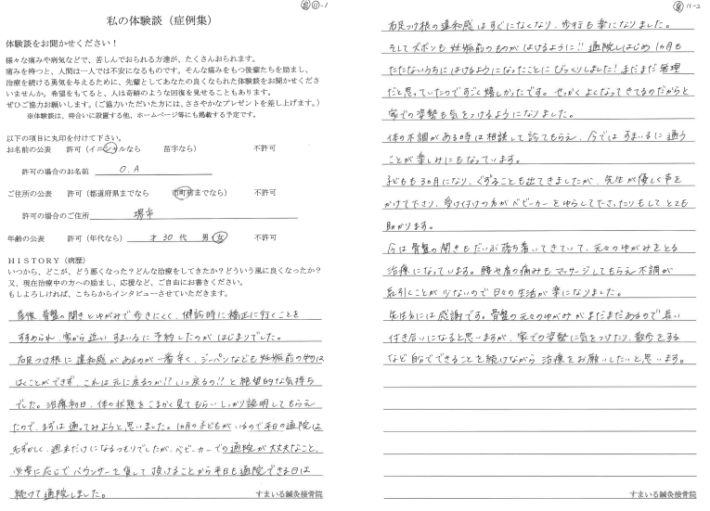 ⑪-1
私の体験談（症例集）
体験談をお聞かせください！
様々な痛みや病気などで、苦しんでおられる方達が、たくさんおられます。
痛みを持つと、人間は一人では不安になるものです。そんな痛みをもつ後輩たちを励まし、
治療を続ける勇気を与えるために、先輩としてあなたの良くなられた体験談をお聞かせくださ
いませんか。希望をもてると、人は奇跡のような回復を見せることもあります。
ぜひご協力お願いします。（ご協力いただいた方には、ささやかなプレゼントを差し上げます。）
※体験談は、待合いに設置する他、ホームページ等にも掲載する予定です。
以下の項目に丸印を付けて下さい。
お名前の公表　許可（イニシャルなら　苗字なら）　不許可
許可の場合のお名前　O.A
ご住所の公表　許可（都道府県までなら　市町村までなら）　不許可
許可の場合のご住所　堺市
年齢の公表　許可（年代なら）　才 30 代　男 女　不許可
HISTORY（病歴）
いつから、どこが、どう悪くなった？どんな治療をしてきたか？どういう風に良くなったか？
又、現在治療中の方への励まし、応援など、ご自由にお書きください。
もしよろしければ、こちらからインタビューさせていただきます。
産後、骨盤の開きとゆがみで歩きにくく、健診時に矯正に行くことを
すすめられ、家から近い すまいるに予約したのがはじまりでした。
右足つけ根に違和感があるのが一番辛く、ジーパンなども妊娠前の物は
はくことができず、これは元に戻るのか!? いつ戻るの!? と絶望的な気持ち
でした。治療初日、体の状態をこまかく見てもらい しっかり説明してもらえ
たので、まずは通ってみようと思いました。1ヵ月の子どもがいるので平日の通院は
むずかしく、週末だけになるつもりでしたが、ベビーカーでの通院が大丈夫なこと、
必要に応じて バウンサーを貸して頂けることから平日も通院できる日は
続けて通院しました。
すまいる鍼灸接骨院
⑪-2
右足つけ根の違和感はすぐになくなり、歩行も楽になりました。
そしてズボンも妊娠前のものがはけるように!! 通院しはじめ1ヵ月も
たたないうちにはけるようになったことにびっくりしました! まだまだ無理
だと思っていたのですごく嬉しかったです。せっかくよくなってきてるのだからと
家での姿勢も気をつけるようになりました。
体の不調がある時は相談して診てもらえ、今では すまいるに通う
ことが楽しみにもなっています。
子どもも3ヵ月になり、ぐずることも出てきましたが、先生が優しく声を
かけて下さり、受け付けの方がベビーカーをゆらして下さったりもして とても
助かります。
今は骨盤の開きもだいぶ落ち着いてきていて、元々のゆがみをとる
治療になっています。腰や肩の痛みもマッサージしてもらえ 不調が
長引くことが少ないので日々の生活が楽になりました。
先生方には感謝です。骨盤の元々のゆがみがまだまだあるので長い
付き合いになると思いますが、家での姿勢に気をつけたり、散歩をする
など自分でできることを続けながら 治療をお願いしたいと思います。
すまいる鍼灸接骨院